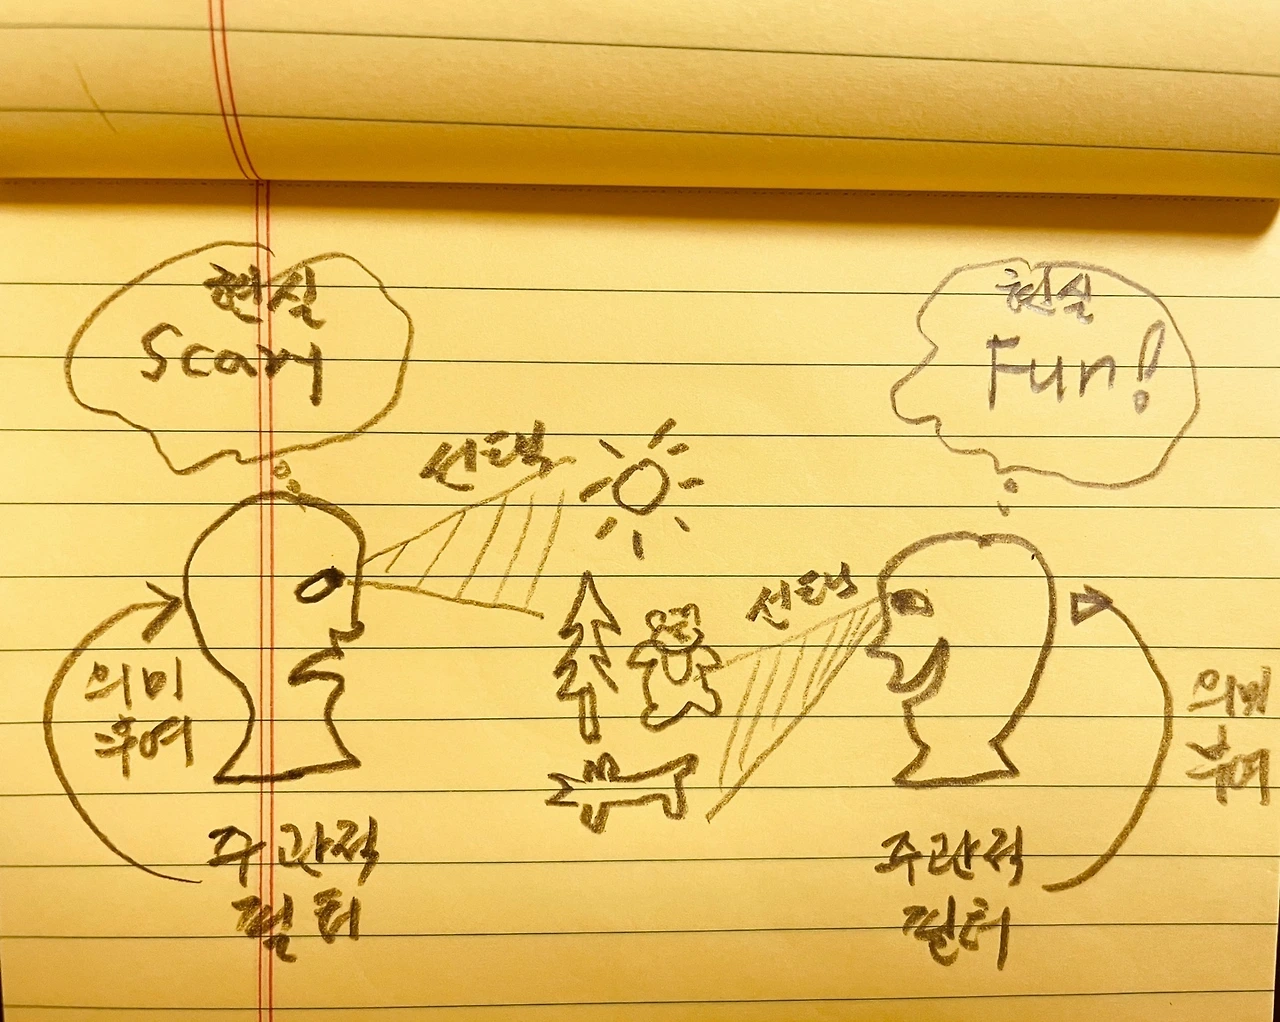 현실
Scary
현실
Fun!
선택
선택
의미
부여
의미
부여
주관적
필터
주관적
필터